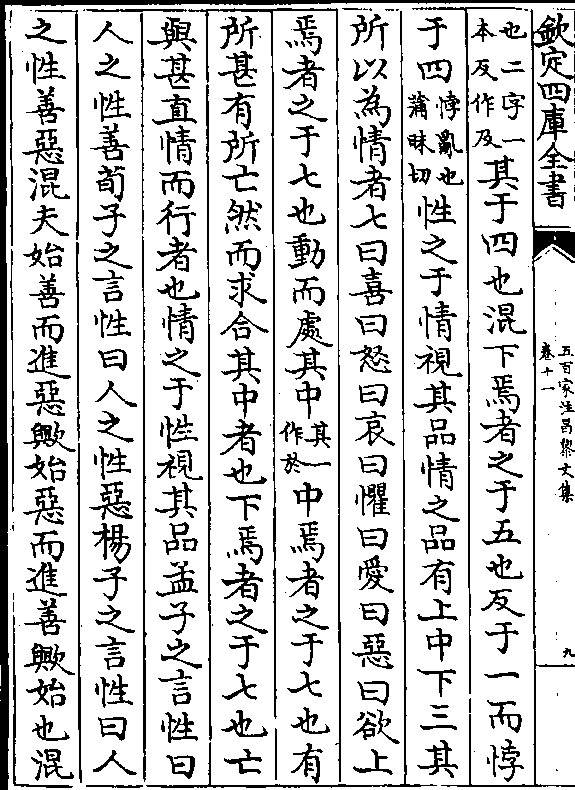 欽定四庫全書
五百家注昌黎文集
卷十一
九
也二字一
本反作及
其于四也混下焉者之于五也反于一而悖
于四
悖亂也
蒲昧切
性之于情視其品情之品有上中下三其
所以為情者七曰喜曰怒曰哀曰懼曰愛曰惡曰欲上
焉者之于七也動而處其中
其一
作於
中焉者之于七也有
所甚有所亡然而求合其中者也下焉者之于七也亡
與甚直情而行者也情之于性視其品孟子之言性曰
人之性善荀子之言性曰人之性惡楊子之言性曰人
之性善惡混夫始善而進惡歟始惡而進善歟始也混